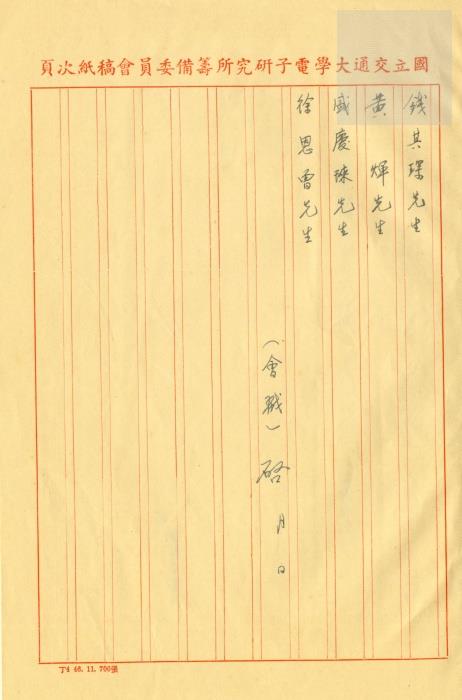 國立交通大學電子研究所籌備委員會稿紙次頁
錢其琛先生
黃煇先生
盛慶琜先生
徐恩曾先生
（會戳）啓 月 日
丁4 46.11.700張